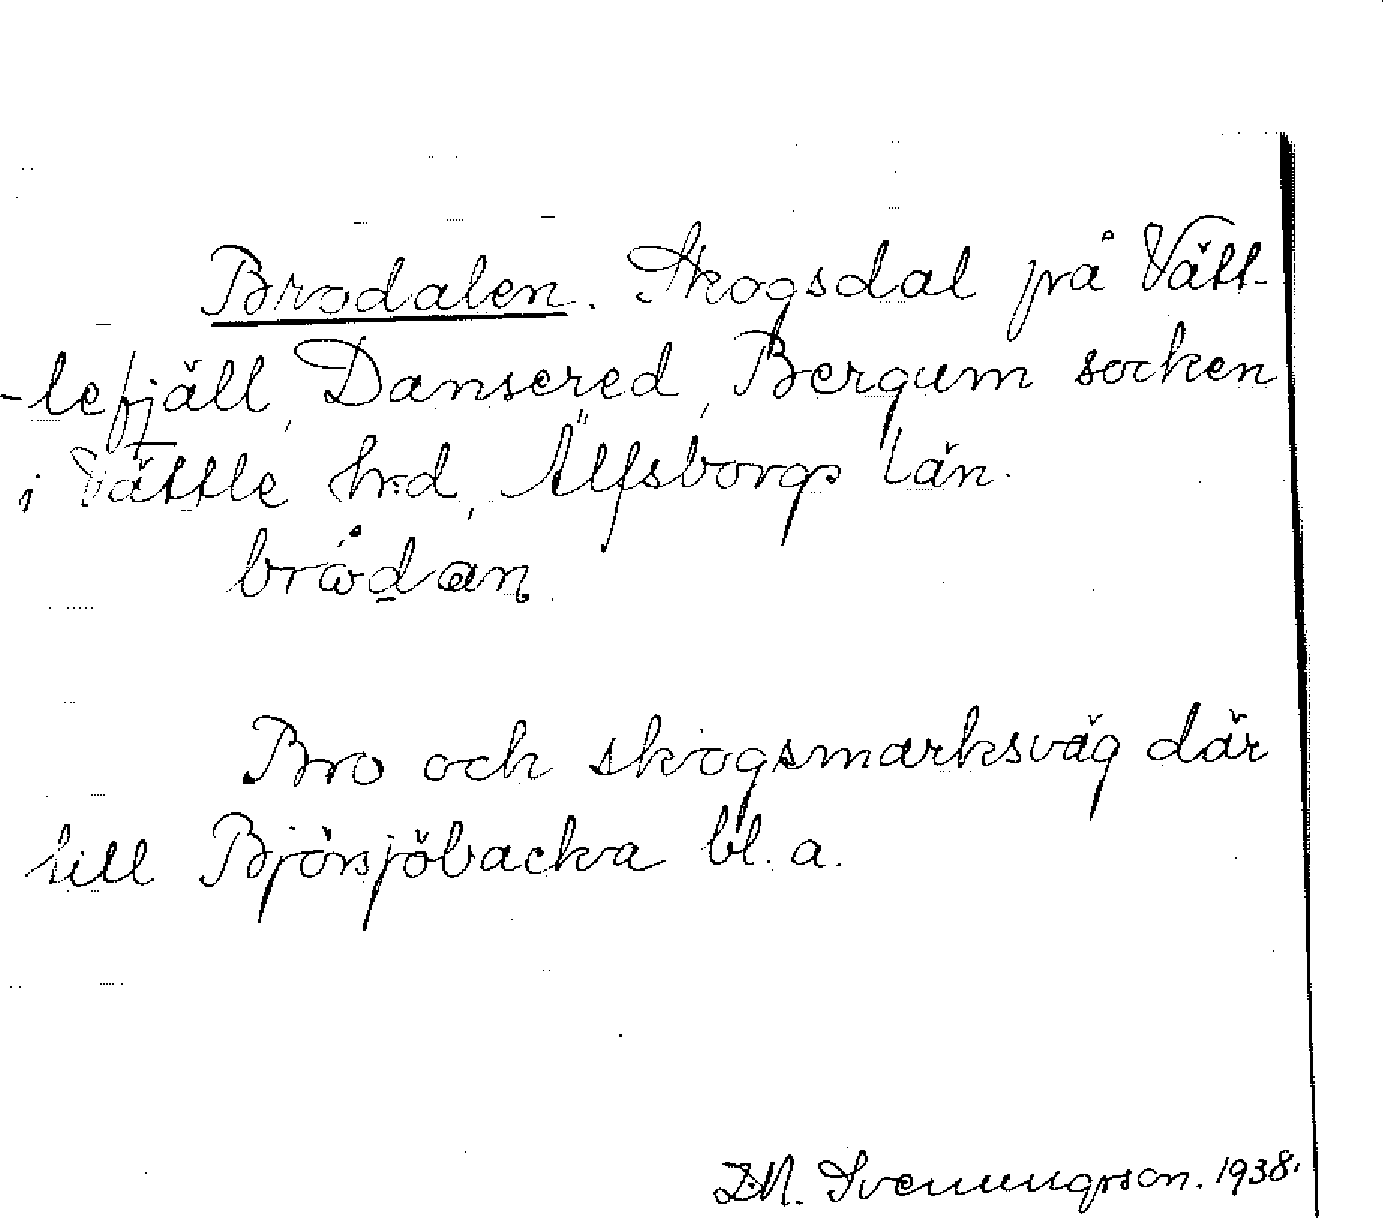 Brodalen. Skogsdal på Vätt-
-lefjäll, Dansered, Bergum socken
i Vättle hrd, Älfsborgs län.
brådan
Bro och skogsmarksväg där
till Björsjöbacka bl. a.
Svenungsson. 1938.